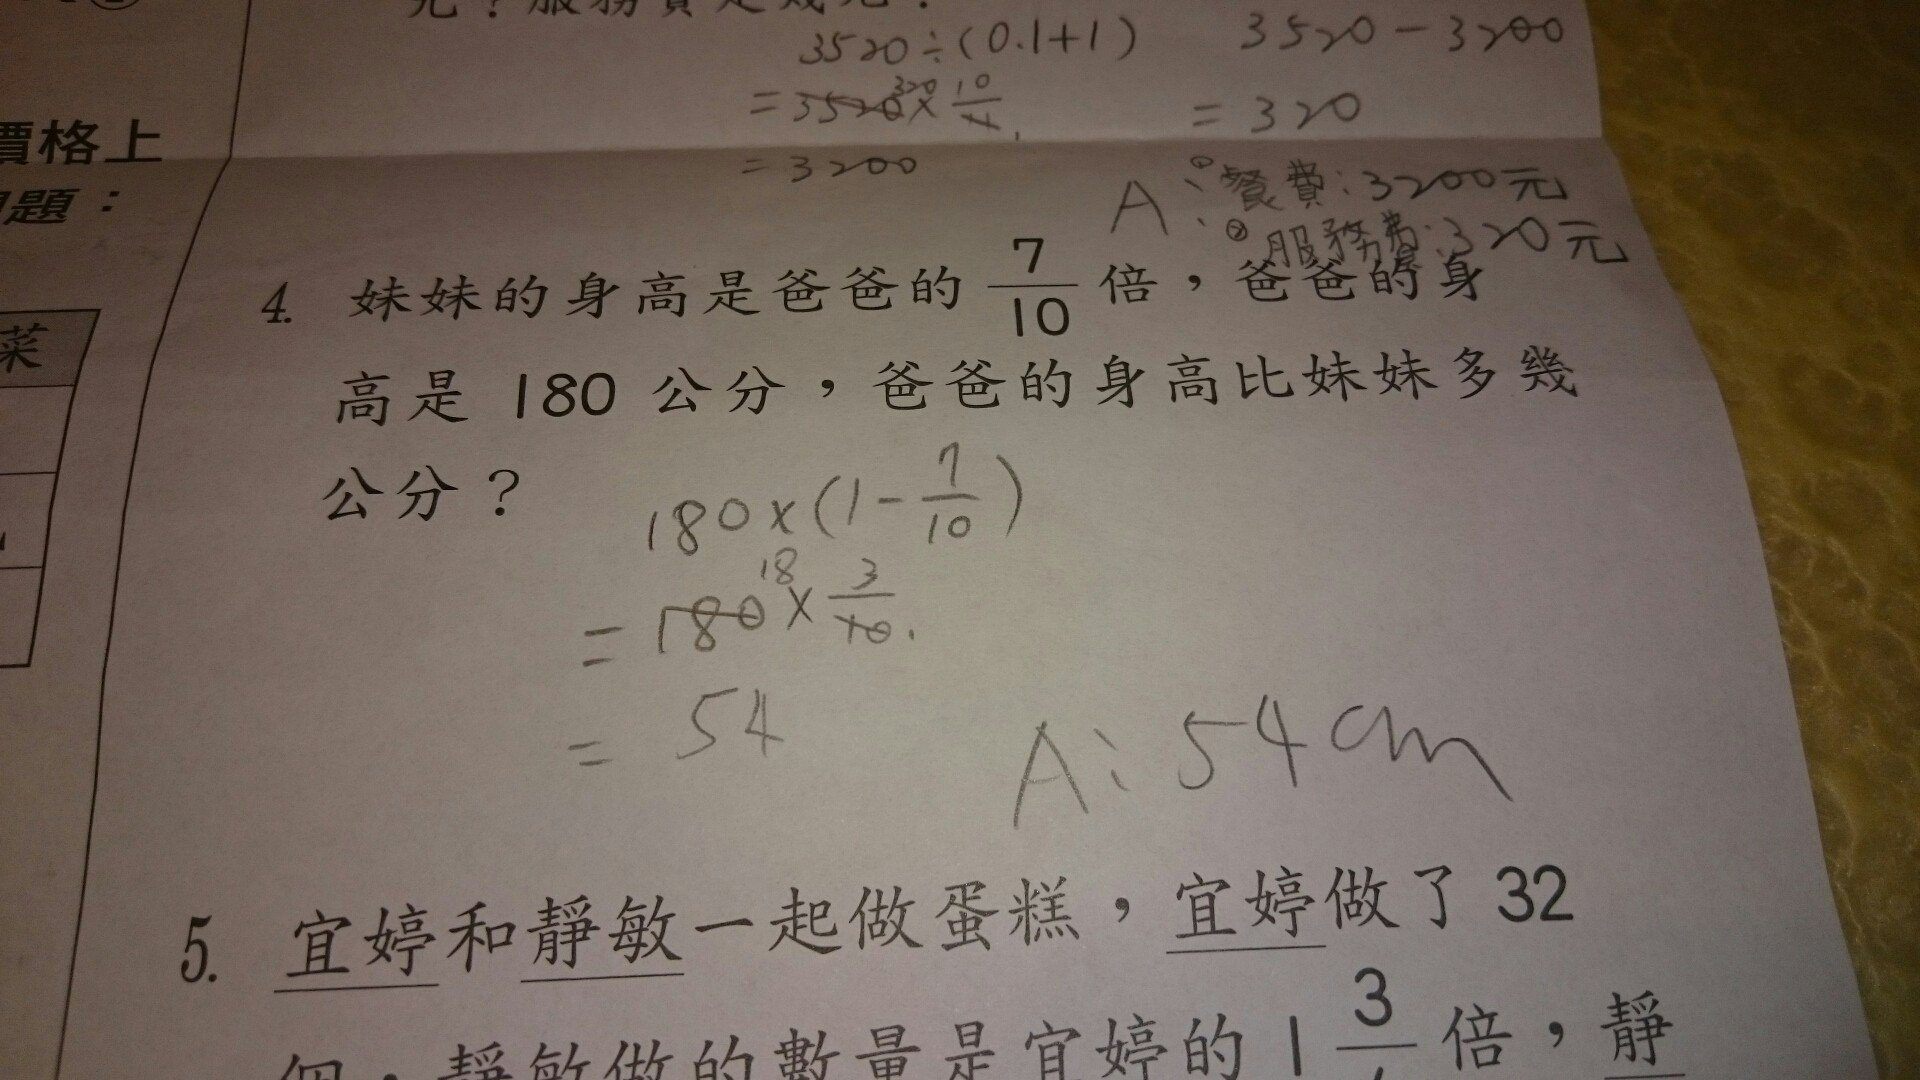 3520÷(0.1+1) 3520-3200
=3520 320 × 10/11 =320
=3200
價格上
題：
A：①餐費：3200元
②服務費：320元
菜
4. 妹妹的身高是爸爸的 7/10 倍，爸爸的身
高是 180 公分，爸爸的身高比妹妹多幾
公分？
180×(1-7/10)
=180 18 × 3/10 1
=54
A：54cm
5. 宜婷和靜敏一起做蛋糕，宜婷做了 32
個，靜敏做的數量是宜婷的 1 3/ 倍，靜